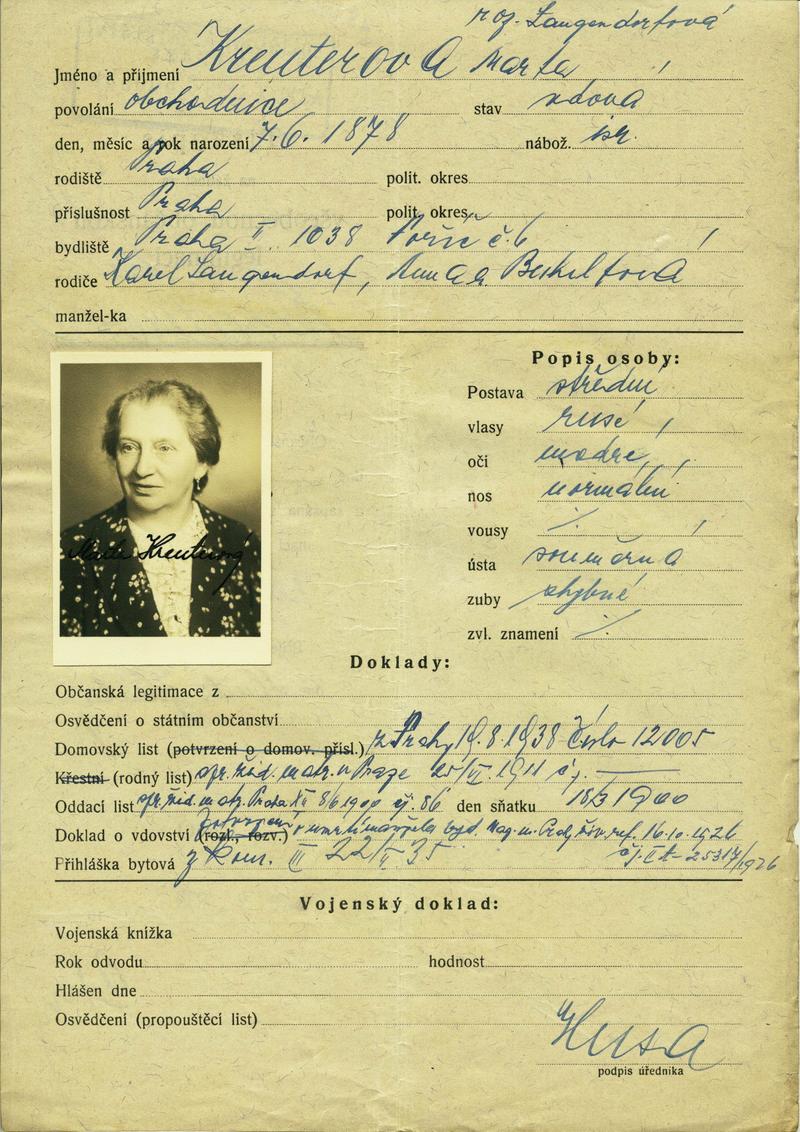 roz. Langendorfová
Jméno a přijmení Kreuterová Marta
povolání obchodnice stav vdova
den, měsíc a rok narození 7.6. 1878 nábož. isr.
rodiště Praha polit. okres
příslušnost Praha polit. okres
bydliště Praha II. 1038 Poříč č. 6
rodiče Karel Langendorf, Anna
manžel-ka
Popis osoby:
Postava střední
vlasy rusé
oči modré
nos normální
vousy ⁒
ústa souměrná
zuby chybné
zvl. znamení ⁒
Marta Kreuterová
Doklady:
Občanská legitimace z
Osvědčení o státním občanství
Domovský list (potvrzení o domov. přísl.) z Prahy 19.8.1938 číslo 12005
Křestní (rodný list) žid. matr. v Praze 1911 čj.
Oddací list žid. matr. Praha 8/6 1900 čj. 86 den sňatku 18/3 1900
potvrzení
Doklad o vdovství (rozl., rozv.) o úmrtí manžela vyd. Mag. m. Prahy ref. 16.10.1926
čj. 25317/1926
Přihláška bytová z kom. III 22/V. 35
Vojenský doklad:
Vojenská knížka
Rok odvodu hodnost
Hlášen dne
Osvědčení (propouštěcí list)
Husa
podpis úředníka